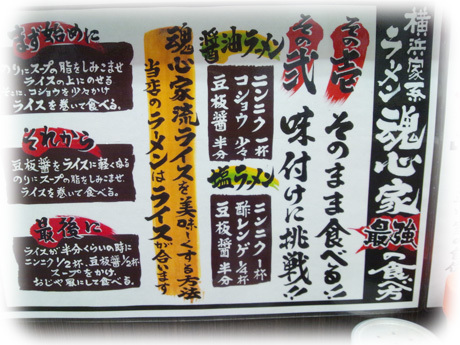 横浜家系
ラーメン魂心家
最強の食べ方
その壱
そのまま食べる!!
その弐
味付けに挑戦!!
醤油ラーメン
ニンニク一杯
コショウ少々
豆板醤半分
塩ラーメン
ニンニク一杯
酢レンゲ1/2杯
豆板醤半分
魂心家流ライスを美味しくする方法
当店のラーメンはライスが合います
まず始めに
のりにスープの脂をしみこませ
ライスの上にのせる
コショウを少々かけ
ライスを巻いて食べる。
それから
豆板醤をライスに軽くぬる
のりにスープの脂をしみこませ、
ライスを巻いて食べる。
最後に
ライスが半分くらいの時に
ニンニク1/2杯、豆板醤1/2杯
スープをかけ、
おじや風にして食べる。